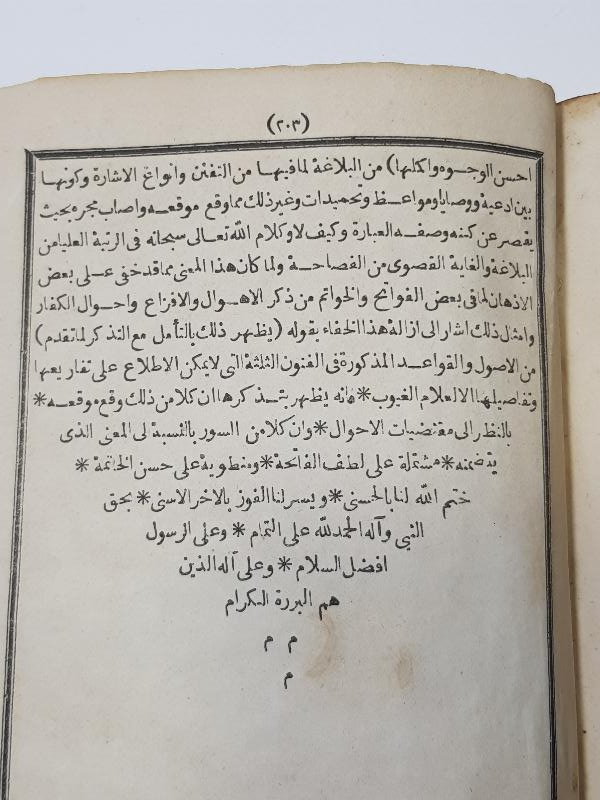 (٢٠٣)
احسن الوجوه واكملها) من البلاغة لما فيها من التفنن وانواع الاشارة وكونها
بين ادعية ووصايا ومواعظ وتحميدات وغير ذلك مما وقع موقعه واصاب مجزه بحيث
يقصر عن كنه وصفه العبارة وكيف لا وكلام الله تعالى سبحانه فى الرتبة العليا من
البلاغة والغاية القصوى من الفصاحة ولما كان هذا المعنى مما قد خفى على بعض
الاذهان لما فى بعض الفواتح والخواتم من ذكر الاهوال والافزاع واحوال الكفار
وامثل ذلك اشار الى ازالة هذا الخفاء بقوله (يظهر ذلك بالتأمل مع التذكر لما تقدم)
من الاصول والقواعد المذكورة فى الفنون الثلثة التى لا يمكن الاطلاع على تفاريعها
وتفاصيلها الا لعلام الغيوب * فانه يظهر بتذكرها ان كلا من ذلك وقع موقعه *
بالنظر الى مقتضيات الاحوال * وان كلا من السور بالنسبة لى المعنى الذى
يتضمنه * مشتملة على لطف الفاتحة * ومنطوية على حسن الخاتمة *
ختم الله لنا بالحسنى * ويسر لنا الفوز بالاخر الاسنى * بحق
النبى وآله الحمد لله على التمام * وعلى الرسول
افضل السلام * وعلى آله الذين
هم البررة الكرام
م م
م